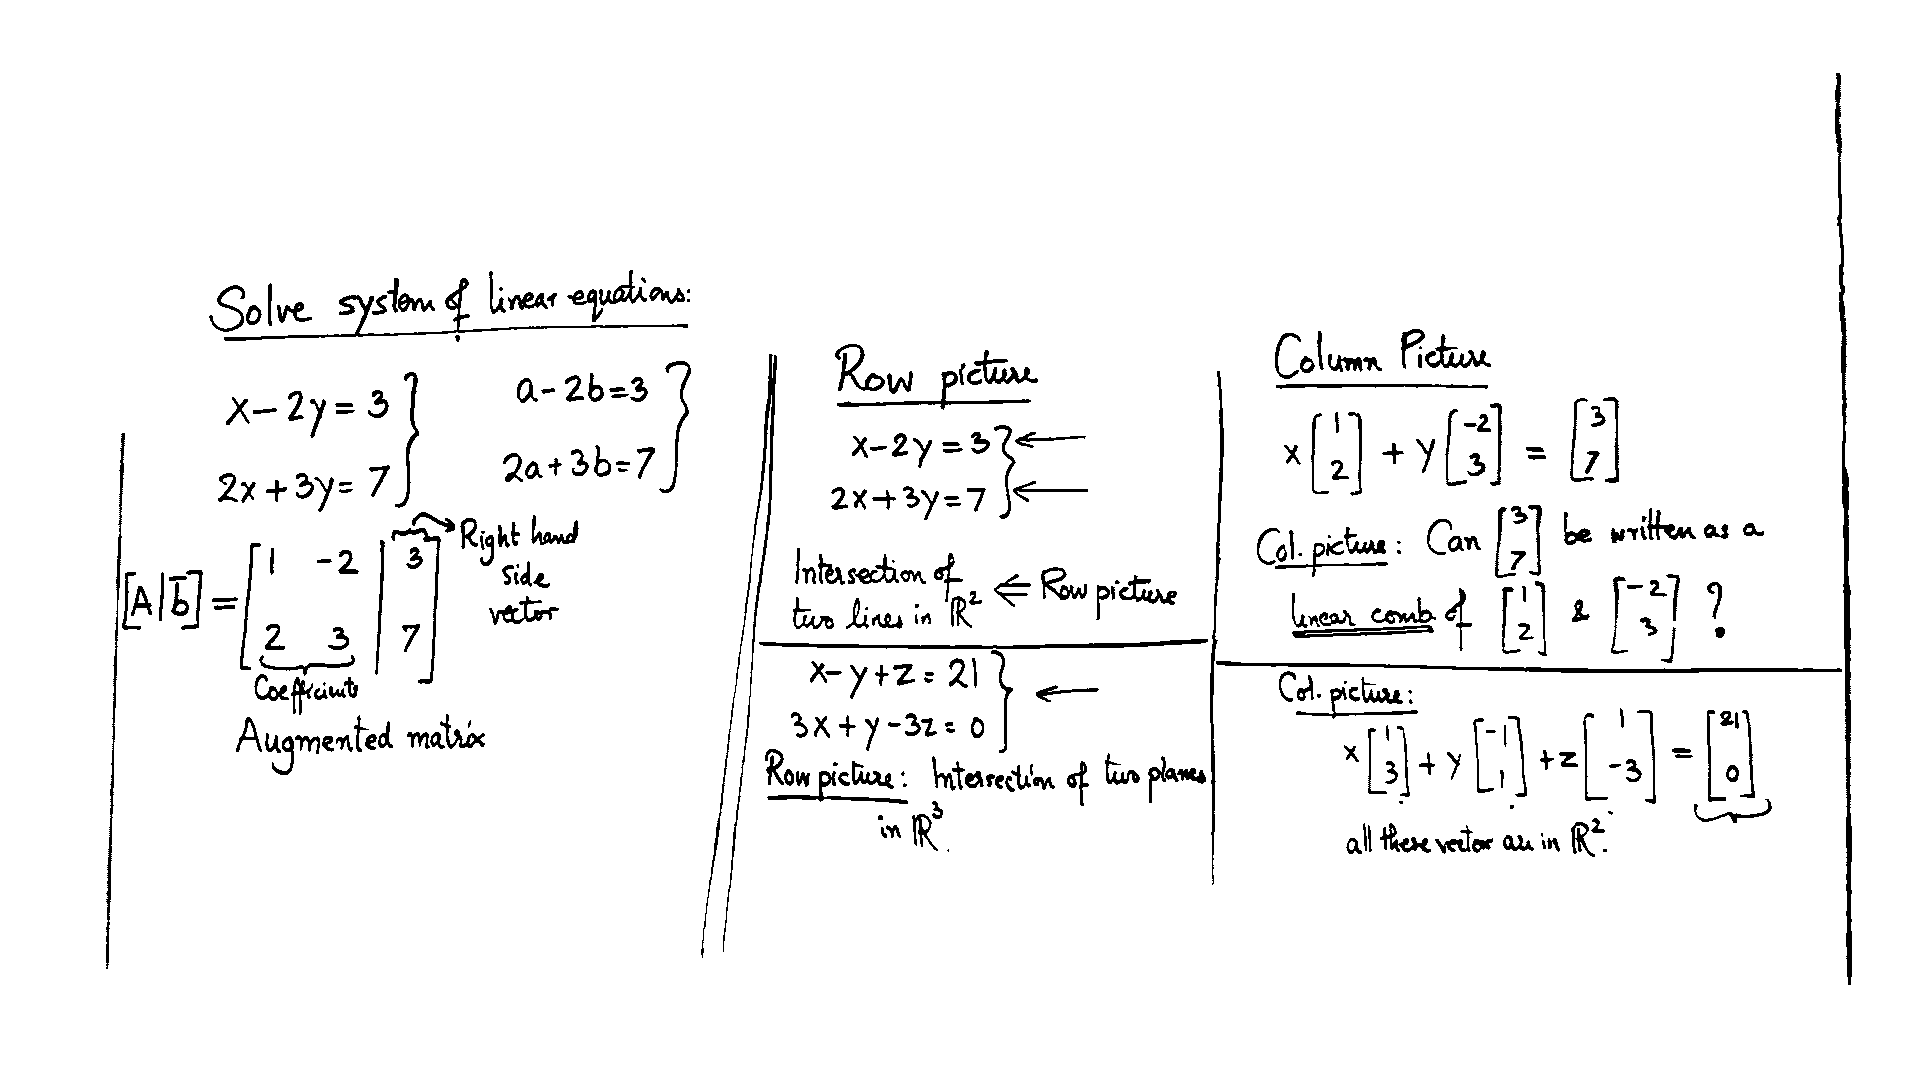 Solve system of linear equations:
x - 2y = 3
2x + 3y = 7
a - 2b = 3
2a + 3b = 7
[A | b̅] = [1 -2 | 3
2 3 | 7]
Right hand
side
vector
Coefficients
Augmented matrix
Row picture
x - 2y = 3 ←
2x + 3y = 7 ←
Intersection of
two lines in ℝ² ⇐ Row picture
x - y + z = 21
3x + y - 3z = 0
←
Row picture: Intersection of two planes
in ℝ³.
Column Picture
x [1 2] + y [-2 3] = [3 7]
Col. picture: Can [3 7] be written as a
linear comb of [1 2] & [-2 3] ?
Col. picture:
x [1 3] + y [-1 1] + z [1 -3] = [21 0]
all these vector are in ℝ².